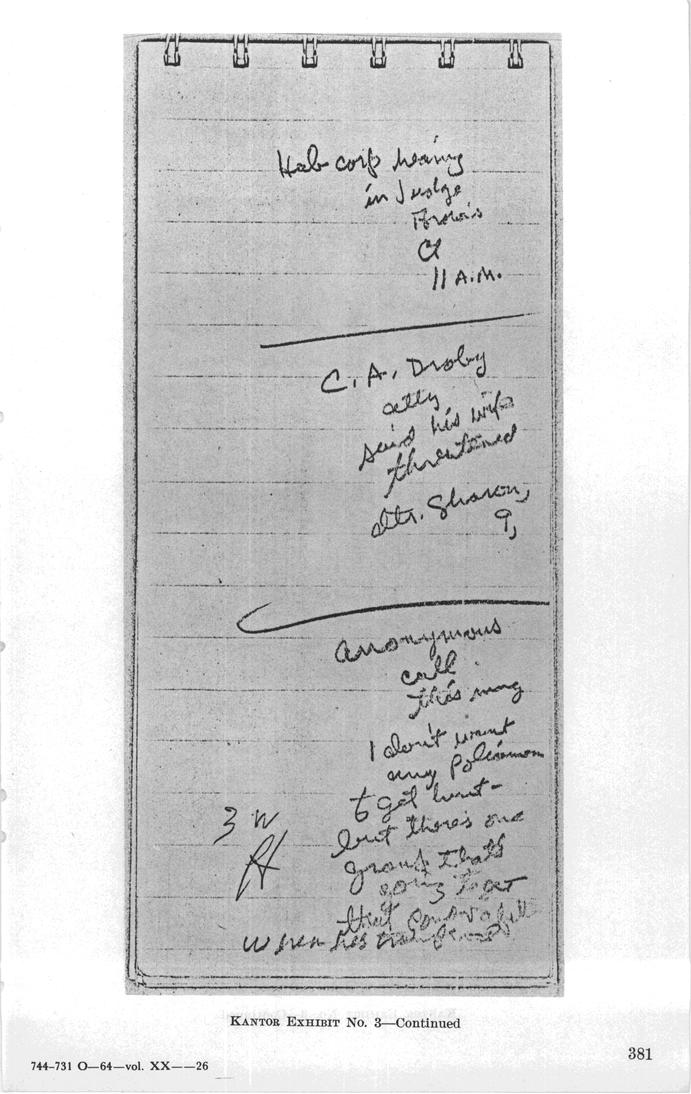 Hab corp hearing
in Judge
Brown's
Ct
11 A.M.
C. A. Droby
atty
said his wife
threatened
dtr. Sharon,
9,
Anonymous
call
this morng
I don't want
any policeman
to get hurt-
but there's one
group that's
going to get
that
when he's transferred
3 W
KANTOR EXHIBIT No. 3—Continued
381
744-731 O—64—vol. XX——26